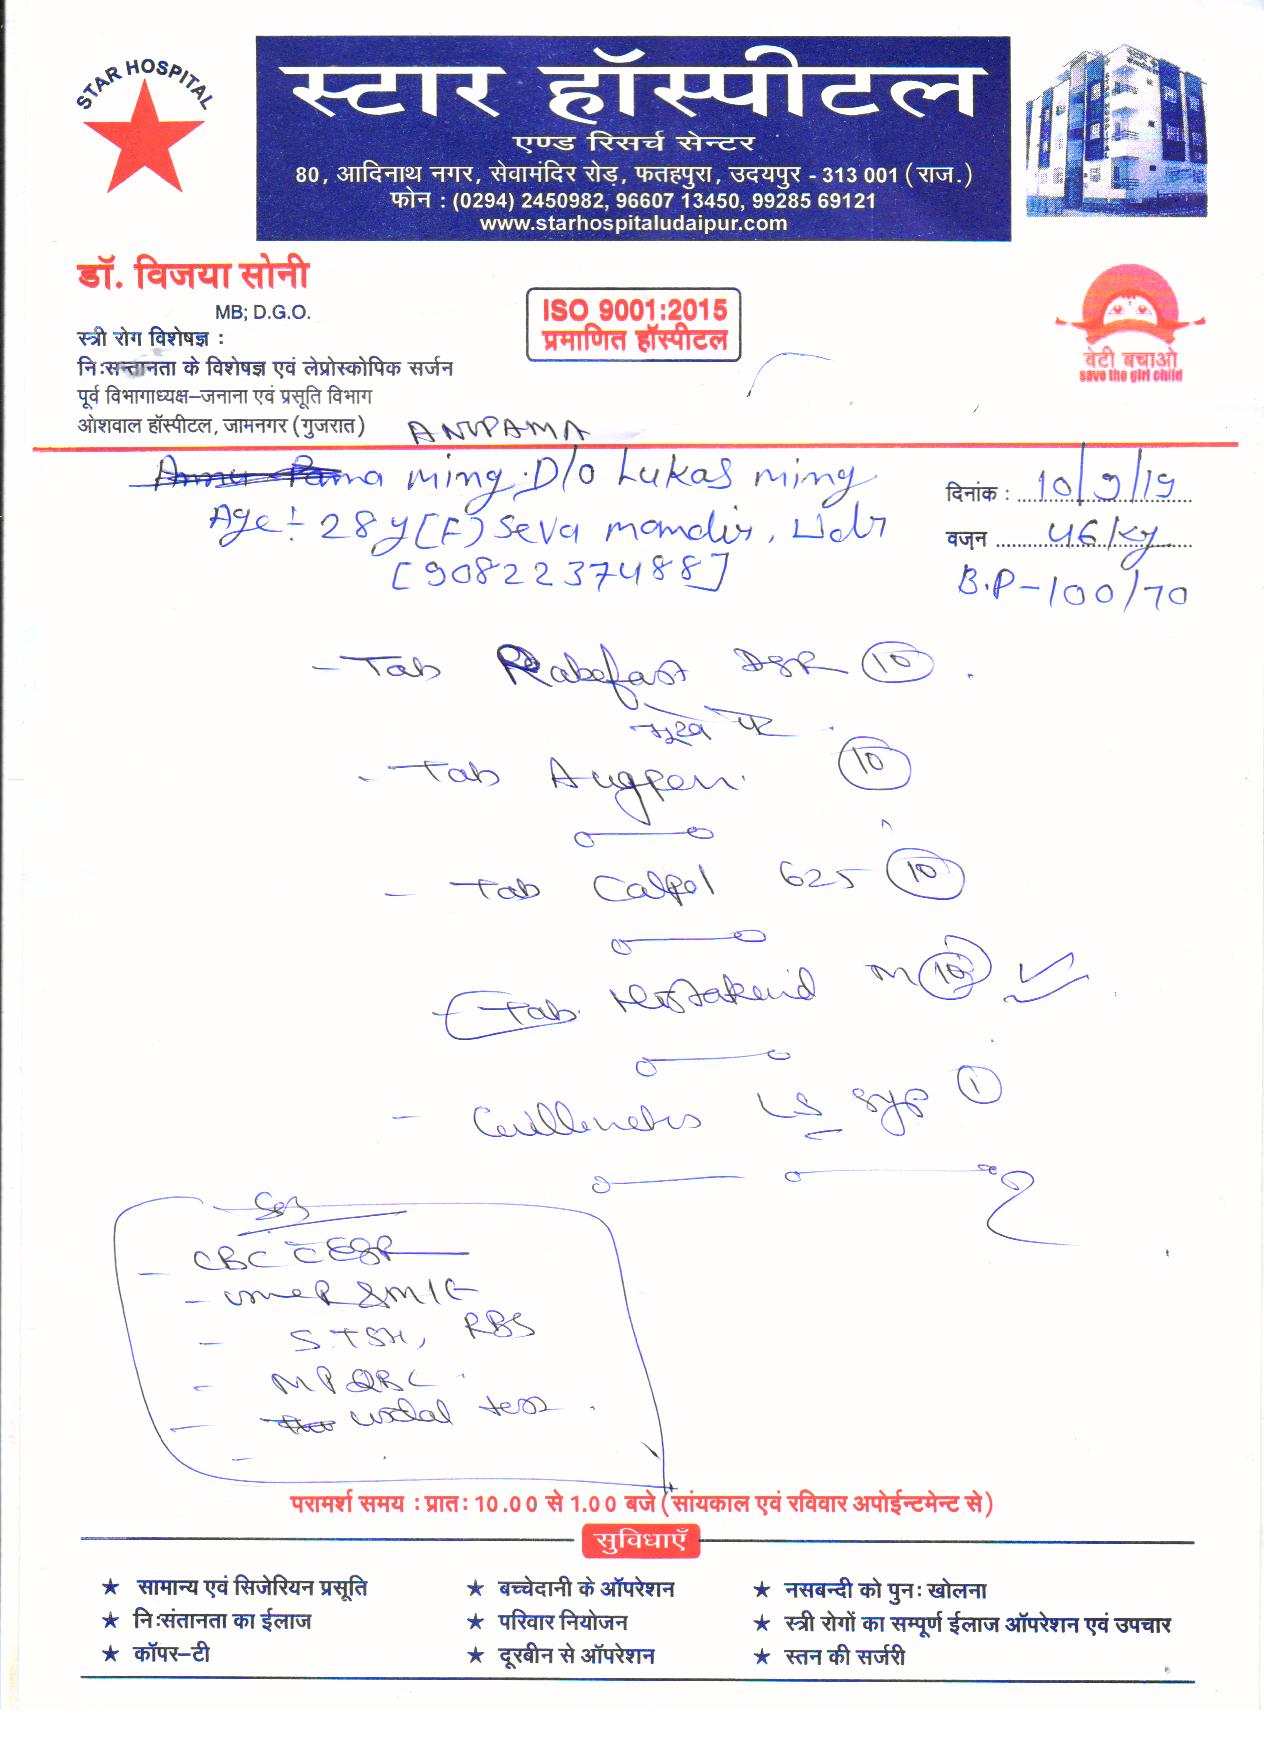 STAR HOSPITAL
स्टार हॉस्पीटल
एण्ड रिसर्च सेन्टर
80, आदिनाथ नगर, सेवामंदिर रोड़, फतहपुरा, उदयपुर - 313 001 (राज.)
फोन : (0294) 2450982, 96607 13450, 99285 69121
www.starhospitaludaipur.com
डॉ. विजया सोनी
MB; D.G.O.
स्त्री रोग विशेषज्ञ :
निःसन्तानता के विशेषज्ञ एवं लेप्रोस्कोपिक सर्जन
पूर्व विभागाध्यक्ष-जनाना एवं प्रसूति विभाग
ओशवाल हॉस्पीटल, जामनगर (गुजरात)
ISO 9001:2015
प्रमाणित हॉस्पीटल
बेटी बचाओ
save the girl child
ANUPAMA
ming D/o Lukas ming
Age :- 28y (F) Seva mandir, Udr
[9082237488]
दिनांक : 10/9/19
वजन 46/kg
B.P - 100/70
- Tab Rabefast DSR 10
भूखे पेट
- Tab Augpen 10
- Tab Calpol 625 10
- Tab. M 10
- LS syp 1
- CBC c ESR
-
- S.TSH, RBS
- MP QBC
- widal test
परामर्श समय : प्रातः 10.00 से 1.00 बजे (सांयकाल एवं रविवार अपोईन्टमेन्ट से)
सुविधाएँ
★ सामान्य एवं सिजेरियन प्रसूति ★ बच्चेदानी के ऑपरेशन ★ नसबन्दी को पुनः खोलना
★ निःसंतानता का ईलाज ★ परिवार नियोजन ★ स्त्री रोगों का सम्पूर्ण ईलाज ऑपरेशन एवं उपचार
★ कॉपर-टी ★ दूरबीन से ऑपरेशन ★ स्तन की सर्जरी